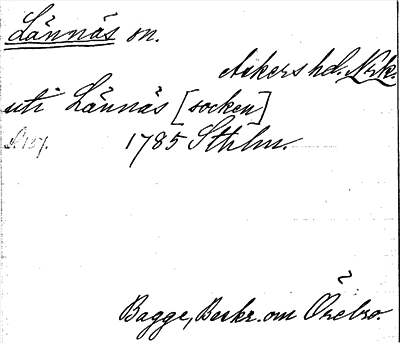 Lännäs sn.
Askers hd. Nrk.
uti Lännäs [socken]
1785 Sthlm.
Bagge, Beskr. om Örebro.